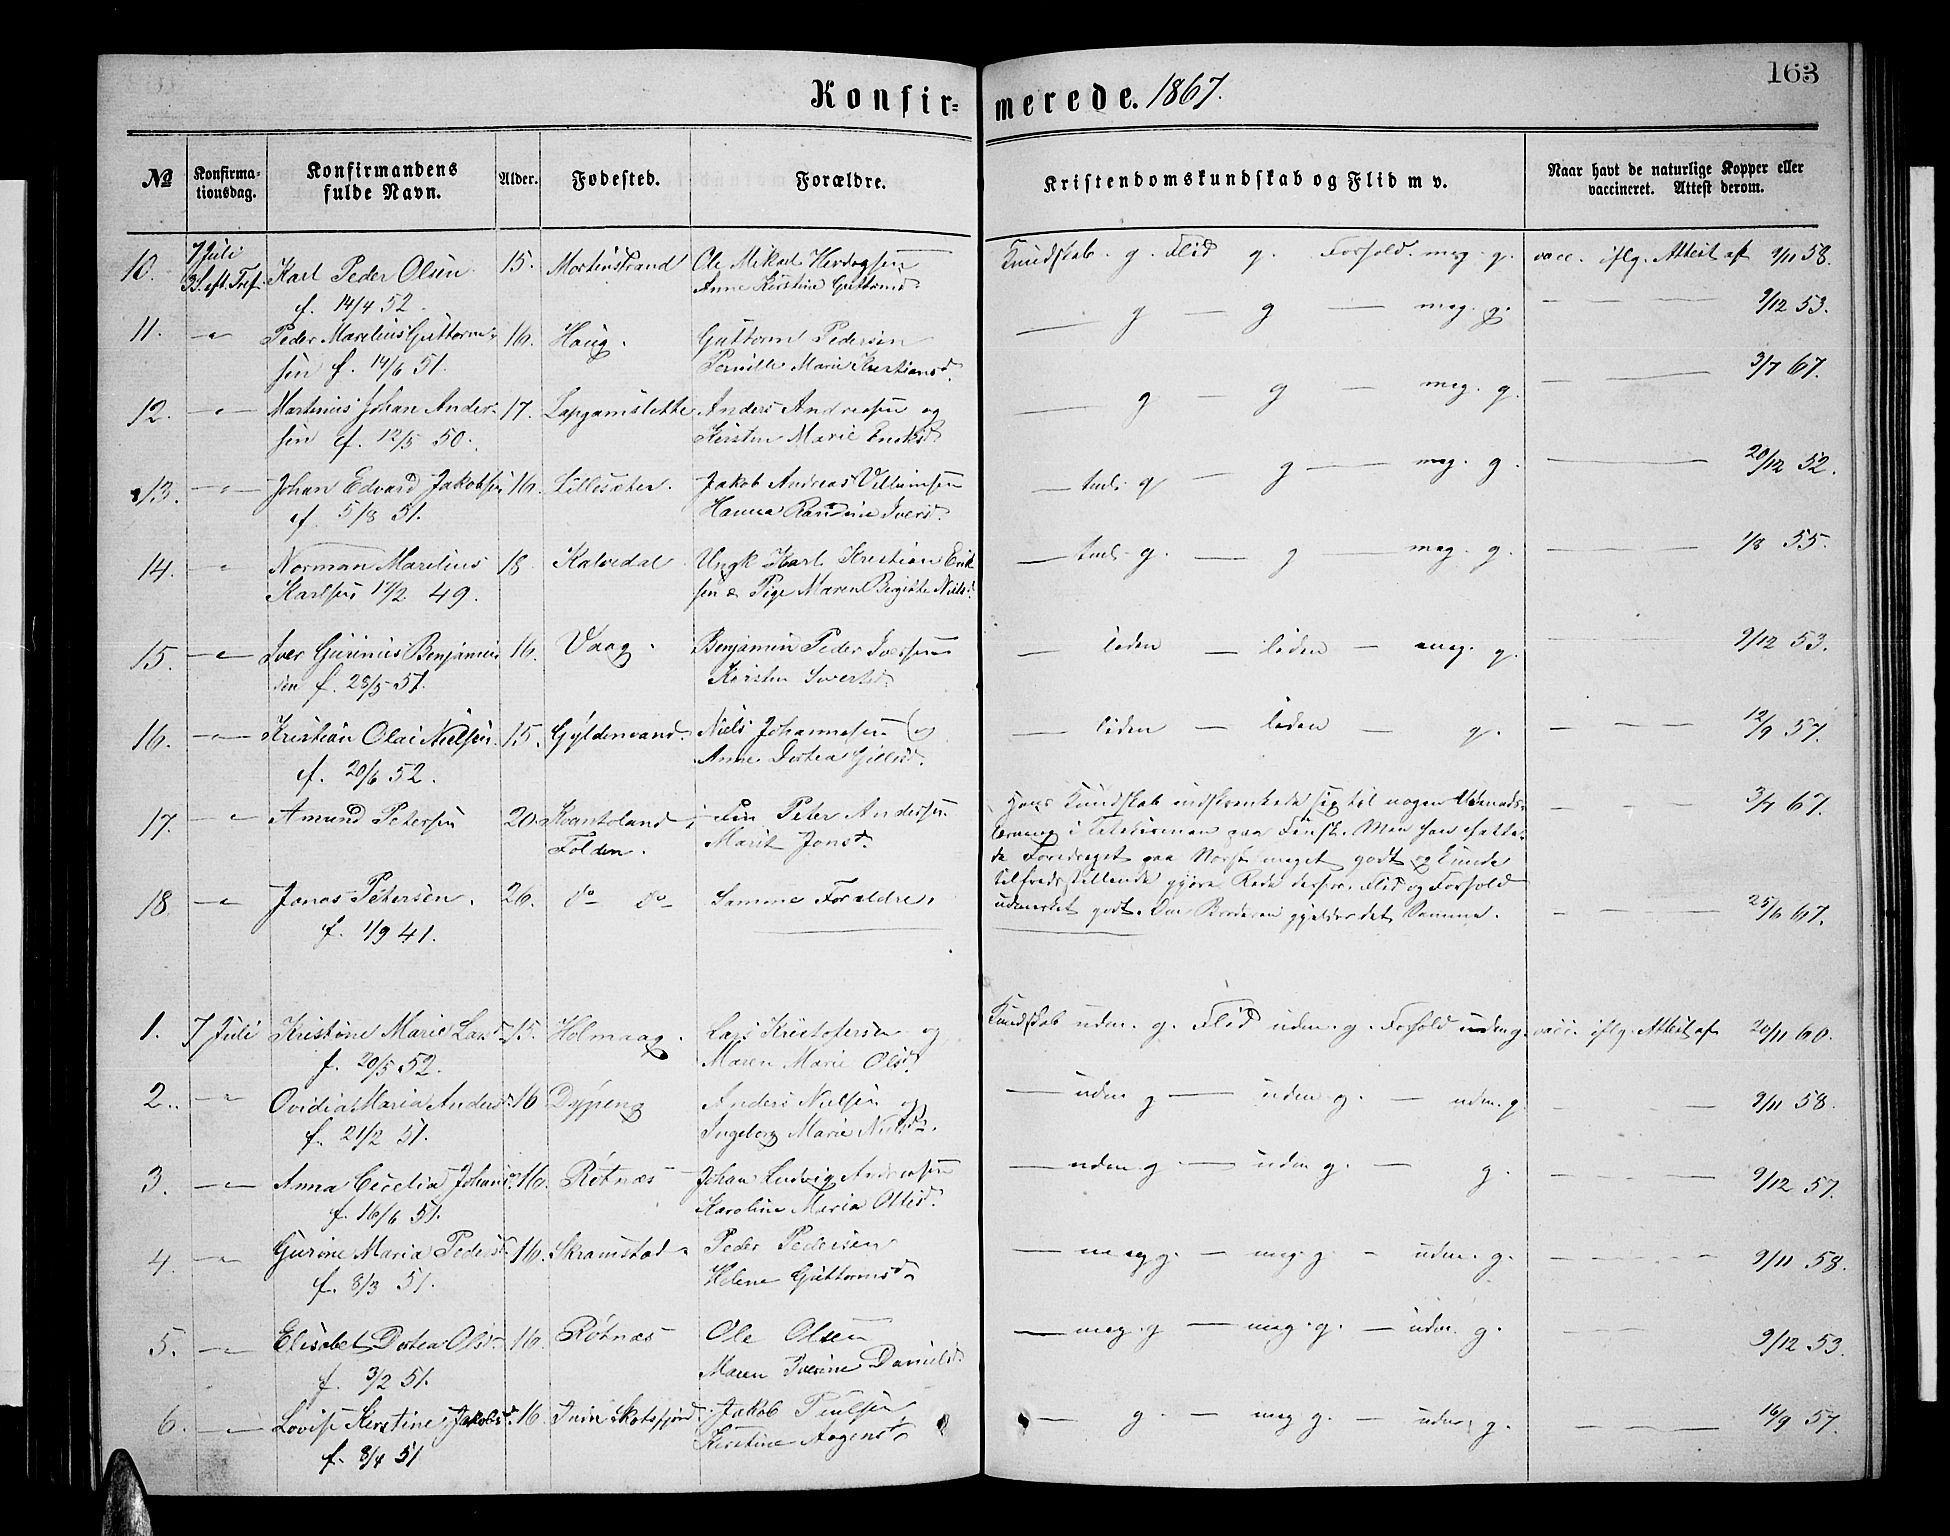 163
Konfir= merede. 1867.
№ Konfirma-tionsdag. Konfirmandens fulde Navn. Alder. Fødested. Forældre. Kristendomskundskab og Flid m v. Naar havt de naturlige Kopper eller vaccineret. Attest derom.
10. 7 Juli Karl Peder Olsen 15. Mortenstrand Ole Mikal Kundskab. g. Flid g. Forhold. meg. g. vacc. iflg. Attest af 9/11 58.
3 S. eft. Tref. f. 14/4 52. Anne Kirstine Guttormsd.
11. -"- Peder Marelius Guttorm- 16. Haug. Guttorm Pedersen — g — g — meg. g. — — — 9/12 53.
sen f. 14/6 51. Pernille Marie Kristiansd.
12. -"- Martinus Johan Ander- 17. Anders Andreasen og — g — g — meg. g. — — 3/7 67.
sen f. 12/5 50. Kirsten Marie Eriksd.
13. -"- Johan Edvard Jakobsen 16. Lillesæter. Jakob Andreas Villumsen — tml. g — g — meg. g. — 20/12 52.
f. 5/8 51. Hanna Randine Iversd.
14. " Norman Marelius 18. Kalvedal Ungk Karl Kristian Erik — tml. g. — g — meg. g. — 1/8 55.
Karlsen 17/2 49. sen & Pige Maren Birgitte Nielsd.
15. -"- Iver Gurinius Benjamin 16. Vaag. Benjamin Peder Iversen — liden — liden — meg. g. — — 9/12 53.
sen f. 28/5 51. Kirsten Sivertsd.
16. -"- Kristian Olai Nielsen 15. Gyldenvand. Niels Johannesen og — liden — liden — g. — — — 12/9 57.
f. 20/6 52. Anne Dortea Gillesd.
17. -" Amund Petersen 20. Fin Peter Andersen Hans Kundskab indskrænkede sig til nogen Udenads- — — — 3/7 67.
Folden. Marit Jonsd. i paa Finsk. Men han fatte-
de Foredraget paa Norsk meget godt og kunde
18. -" Jonas Petersen. 26. do do Samme Forældre. tilfredsstillende gjøre Rede derfor. Flid og Forhold
f. 1/9 41. udmerket godt. Om Broderen gjælder det Samme. — — — 25/6 67.
1. 7 Juli Kristine Marie Larsd. 15. Holmvaag. Lars Kristofersen og Kundskab udm. g. Flid udm. g. Forhold udm g. vacc. iflg. Attest af 20/11 60.
f. 20/5 52. Maren Marie Olsd.
2. -"- Ovidia Maria Andersd. 16 Dypeng Anders Nielsen og — udm g — udm g. — udm. g. — — 9/11 58.
f. 21/2 51. Ingeborg Marie Nielsd.
3. -"- Anna Cecelia Johansd. 16. Rotnæs Johan Ludvig Andreasen — udm g. — udm g. — g. — — — 9/12 57.
f. 16/6 51. Karoline Maria Ottesd.
4. -"- Gurine Maria Pedersd. 16. Skramstad Peder Pedersen — meg g. — meg. g — udm. g. — — — 9/11 58.
f. 8/3 51. Helene Guttormsd.
5. -"- Elisabet Dortea Olsd. 16. Rotnæs Ole Olsen — meg. g — meg. g. — udm. g. — — 9/12 53.
f. 3/2 51. Maren Iverine Danielsd.
6. -"- Lovise Kirstine Jakobsd. 16. Indre Skotsfjord. Jakob Paulsen — g — meg g. — udm. g. — — 16/9 57.
f. 8/4 51 Kirstine Aagensd.